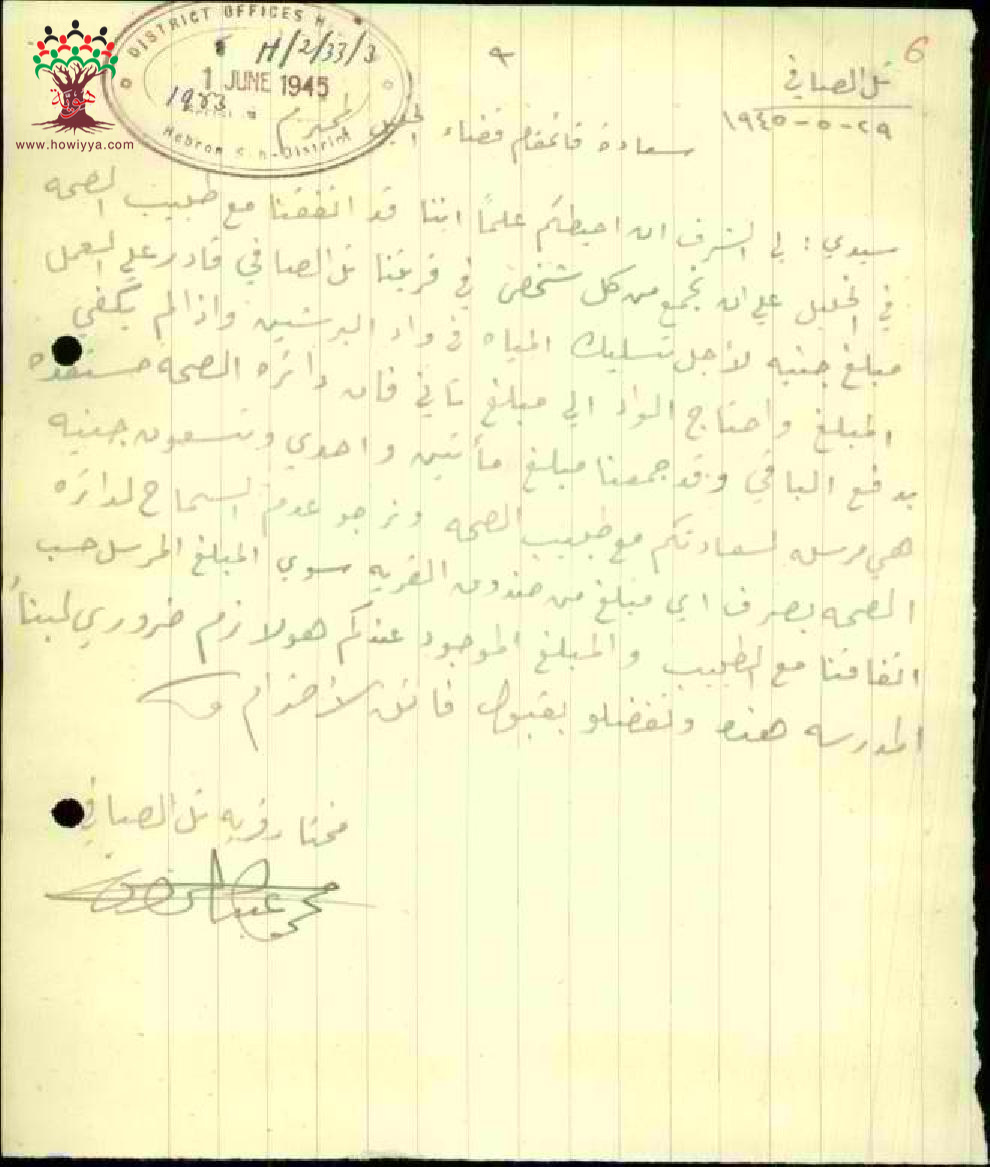 DISTRICT OFFICES H
H/2/33/3
1 JUNE 1945
1923
Hebron Sub-District
هوية
www.howiyya.com
6
٩
تل الصافي
٢٩-٥-١٩٤٥
سعادة قائمقام قضاء الخليل المحترم
سيدي : لي الشرف ان احيطكم علماً اننا قد اتفقنا مع طبيب الصحه
في الخليل علي ان نجمع من كل شخص في قريتنا تل الصافي قادر علي العمل
مبلغ جنيه لأجل تسليك المياه في واد البرشين واذا لم يكفي
المبلغ واحتاج الواد الي مبلغ ثاني فان دائره الصحه مستعده
بدفع الباقي وقد جمعنا مبلغ مأتين واحدي وتسعون جنيه
هي مرسله لسعادتكم مع طبيب الصحه ونرجو عدم السماح لدائره
الصحه بصرف اي مبلغ من صندوق القريه سوي المبلغ المرسل حسب
اتفاقنا مع الطبيب والمبلغ الموجود عندكم هو لازم ضروري لبناً
المدرسه هذه وتفضلو بقبول فائق الأحترام
مختار قريه تل الصافي
محمد عبد